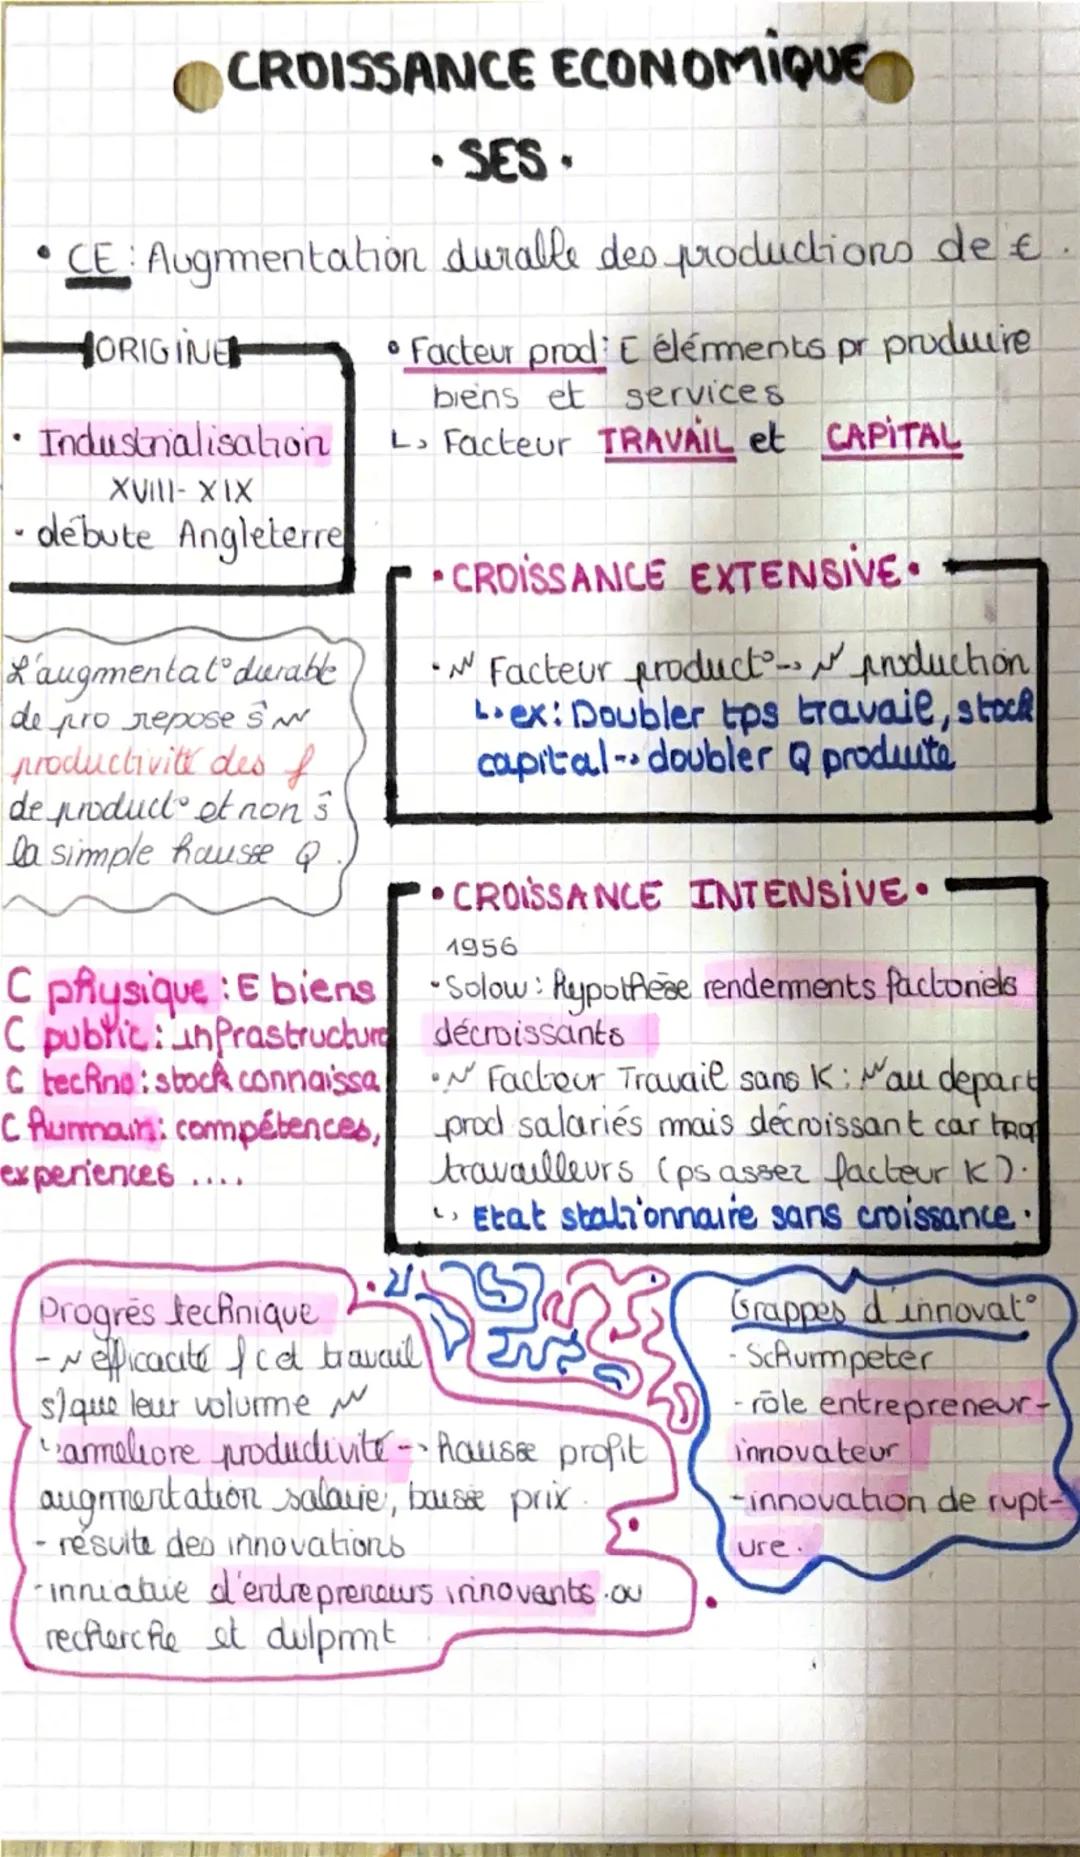 CROISSANCE ECONOMIQUE
• SES •
• CE : Augmentation durable des productions de €.
ORIGINE
• Industrialisation
XVIII - XIX
• débute Angleterre
• Facteur prod : E éléments pr produire
biens et services
↳ Facteur TRAVAIL et CAPITAL
• CROISSANCE EXTENSIVE •
• ↗ Facteur product° → ↗ production
↳ ex : Doubler tps travail, stock
capital → doubler Q produite
L'augmentat° durable
de pro repose s̑ ↗
productivité des f
de product° et non s̑
la simple hausse Q.
• CROISSANCE INTENSIVE •
1956
• Solow : Hypothèse rendements factoriels
décroissants
• ↗ Facteur Travail sans K : ↗ au depart
prod salariés mais décroissant car trop
travailleurs (ps assez facteur K).
↳ Etat stationnaire sans croissance.
C physique : E biens
C public : infrastructure
C techno : stock connaissa
C humain : compétences,
experiences ....
Progrès technique
- ↗ efficacité f c et travail
s) que leur volume ↗
↳ améliore productivité → hausse profit
augmentation salaire, baisse prix.
- résulte des innovations
- initiative d'entrepreneurs innovants ou
recherche et dvlpmnt
Grappes d'innovat°
- Schumpeter
- rôle entrepreneur-
innovateur
- innovation de rupt-
ure.